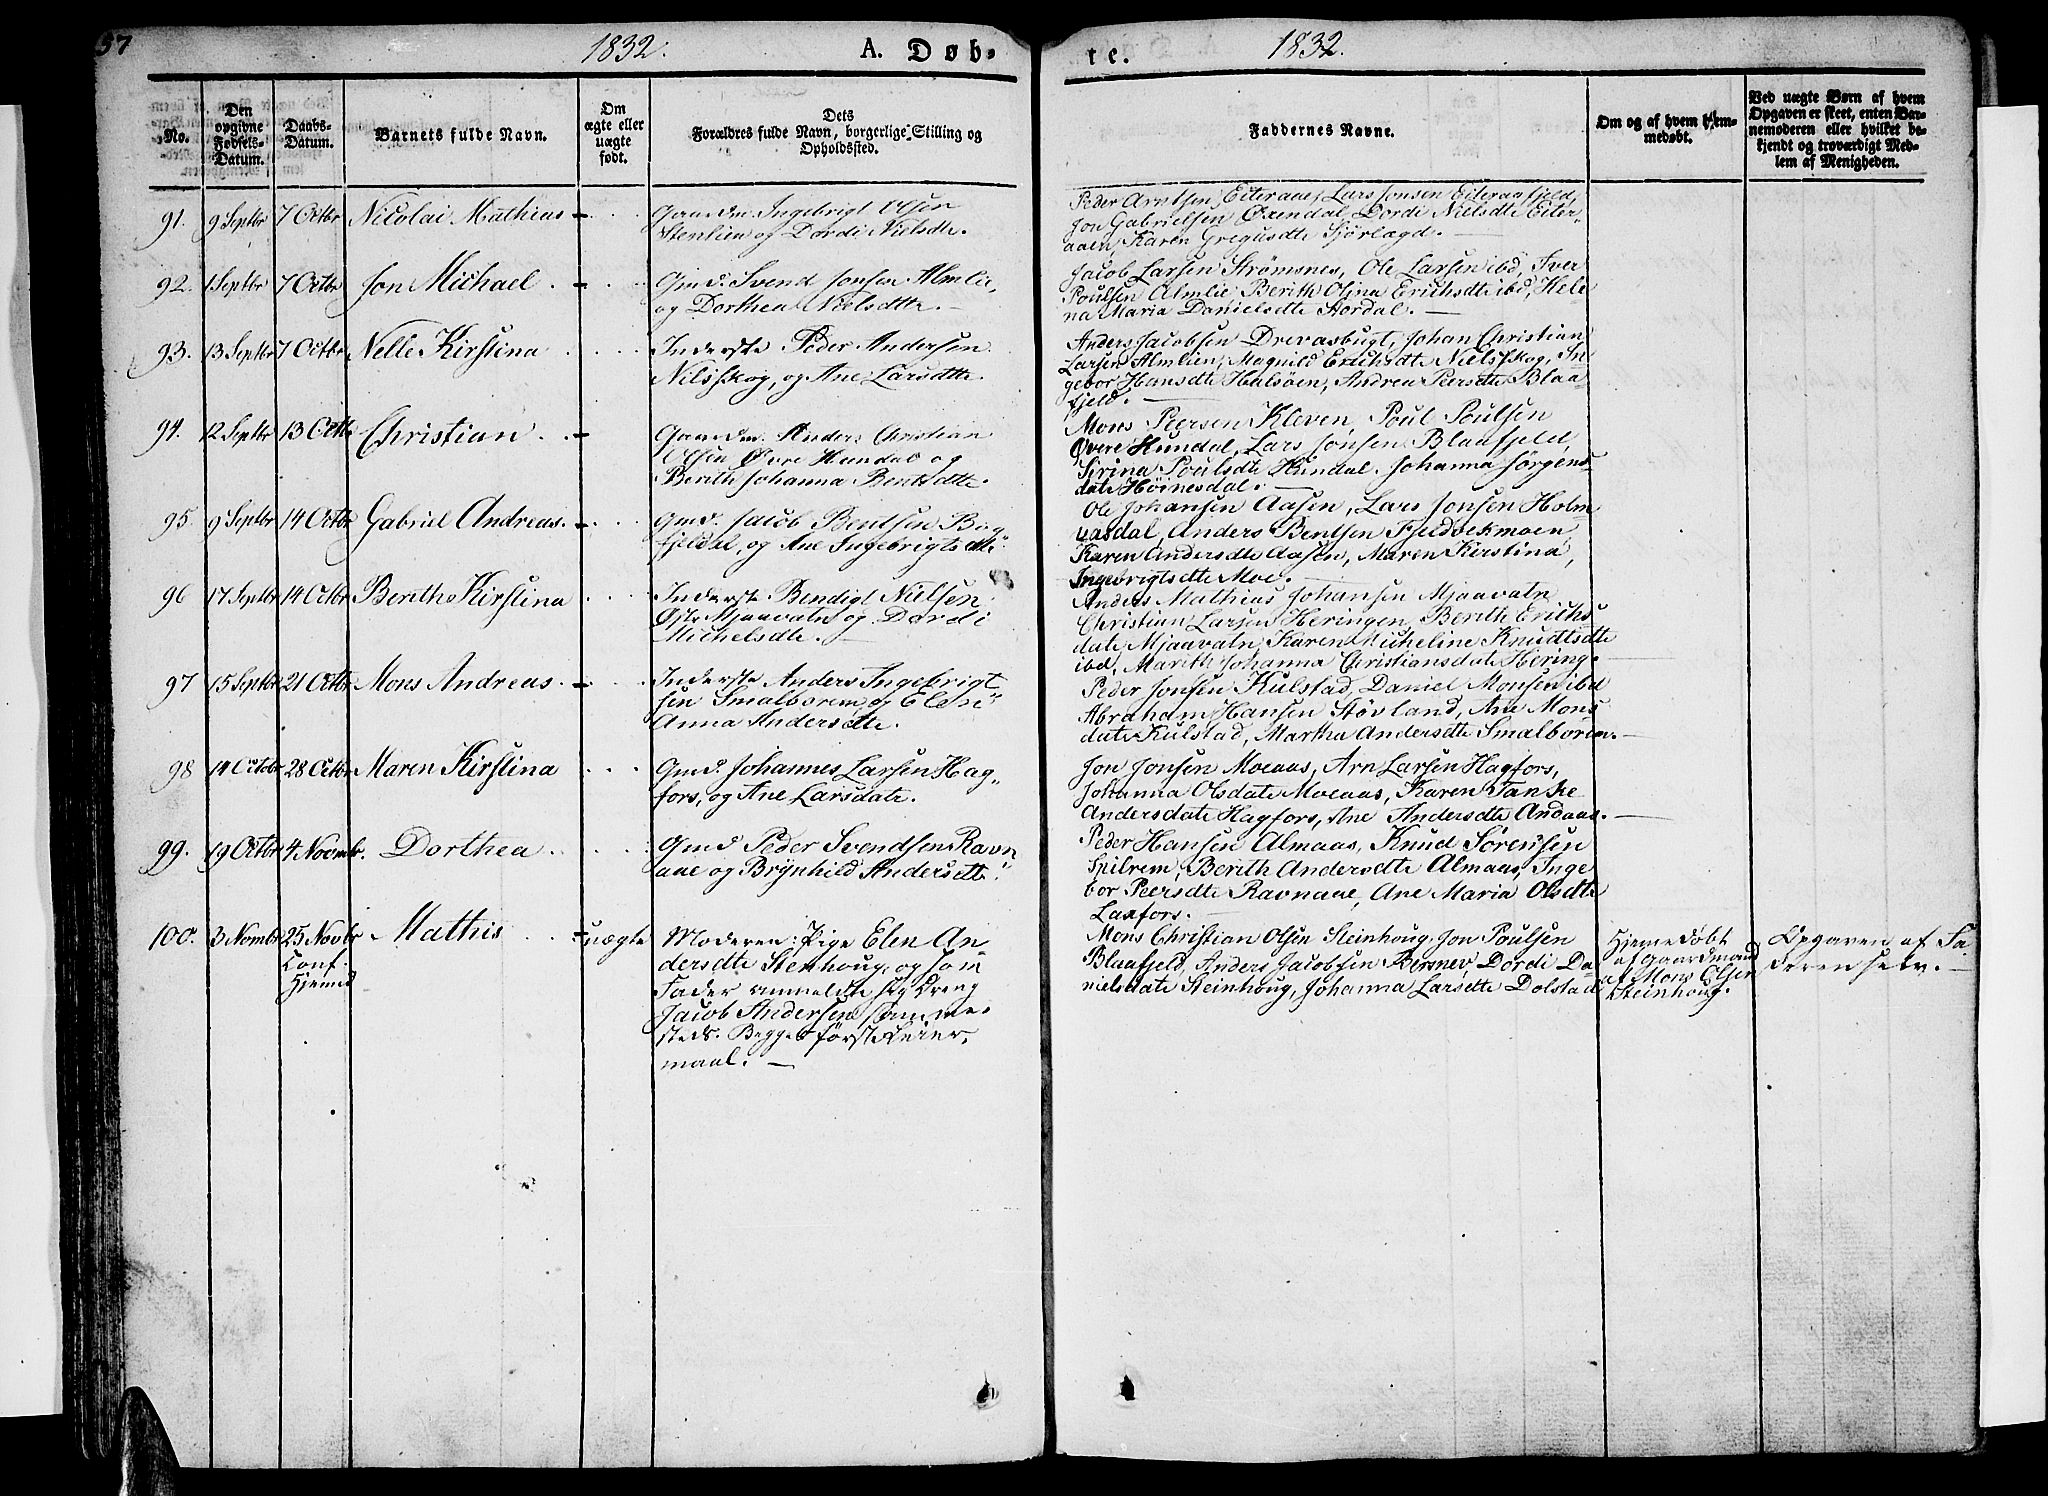 37
1832.
A. Døb-
te.
1832.
No.
Den opgivne Fødsels-Datum.
Daabs-Datum.
Barnets fulde Navn.
Om ægte eller uægte født.
Dets
Forældres fulde Navn, borgerlige Stilling og
Opholdssted.
Faddernes Navne.
Om og af hvem hjem-
medøbt.
Ved uægte Børn af hvem
Opgaven er skeet, enten Bar-
nemoderen eller hvilket be-
kjendt og troværdigt Med-
lem af Menigheden.
91. 9 Septbr 7 Octbr Nicolai Mathias
Gaardm. Ingebrigt Olsen
Stenlien og Dordi Nielsdtr.
Peder Arntsen Eiteraae, Lars Jonsen Eiteraafjeld,
Jon Gabrielsen Øxendal, Dordi Nielsdtr Eiter-
aaen, Karen Gregusdtr Sjørlægd.
92. 1 Septbr 7 Octbr Jon Michael
Gmd. Svend Jonsen Almlie,
og Dorthea Nielsdtr.
Jacob Larsen Strømsnes, Ole Larsen ibd, Iver
Poulsen Almlie, Berith Olina Erichsdtr ibd, Hele
na Maria Danielsdtr Stordal.
93. 13 Septbr 7 Octbr Nelle Kirstina
Inderste Peder Andersen
Nilsskog, og Ane Larsdtr.
Anders Jacobsen Drevasbugt, Johan Christian
Larsen Almlien, Magnild Erichsdtr Nielsskog, In-
gebor Hansdtr Hulsøen, Andrea Peersdtr Blaa-
fjeld.
94. 12 Septbr 13 Octb Christian
Gaardm. Anders Christian
Olsen Øvre Hundal og
Berith Johanna Bentsdtr.
Mons Peersen Kleven, Poul Poulsen
Øvere Hundal, Lars Jonsen Blaafjeld,
Sirina Poulsdtr Hundal, Johanna Jørgens-
datr Høinesdal.
95. 9 Septbr 14 Octbr Gabriel Andreas
Gmd. Jacob Bentsen Bug
fjeldet, og Ane Ingebrigtsdtr
Ole Johansen Aasen, Lars Jonsen Holm
vasdal, Anders Bentsen Fjeldbekmoen,
Karen Andersdtr Aasen, Maren Kirstina,
Ingebrigtsdtr Moe.
96 17 Septbr 14 Octbr Berith Kirstina
Inderst Bendigt Nielsen
Østr Mjaavatn og Dordi
Michelsdtr.
Anders Mathias Johansen Mjaavatn
Christian Larsen Heringen, Berith Erichs-
datr Mjaavatn, Karen Micheline Knudtsdtr
ibd, Marith Johanna Christiansdatr Hering.
97 15 Septbr 21 Octbr Mons Andreas
Inderste Anders Ingebrigt
sen Smalborem, og Elen
Anna Andersdtr.
Peder Jonsen Kulstad, Daniel Monsen ibd
Abraham Hansen Støvland, Ane Mons
datr Kulstad, Martha Andersdtr Smalboren.
98 14 Octobr 28 Octbr Maren Kirstina
Gmd. Johannes Larsen Hag-
fors, og Ane Larsdatr.
Jon Jonsen Moeaas, Arn Larsen Hagfors,
Johanna Olsdatr Moeaas, Karen Tanke
Andersdatr Hagfors, Ane Andersdtr Andaas.
99. 19 Octbr 4 Novmbr. Dorthea
Gmd Peder Svendsen Ravn
aae og Brynhild Andersdtr.
Peder Hansen Almaas, Knud Sørensen
Spilrem, Berith Andersdtr Almaas, Inge
bor Peersdtr Ravnaae, Ane Maria Olsdtr
Laxfors.
100. 3 Novmbr 25 Novbr Mathis uægte
Conf.
Hjemmd
Moderen: Pige Elen An-
dersdtr Stenhoug, og som
Fader anmeldte sig Dreng
Jacob Andersen samme-
steds. Begges første Leier-
maal.
Mons Christian Olsen Steinhoug, Jon Poulsen
Blaafjeld, Anders Jacobsen Remnes, Dordi Da-
nielsdatr Steinhoug, Johanna Larsdtr Dolstad
Hjemmedøbt
af Gaardmand
Mons Olsen
Steinhoug.
Opgaven af Fa-
deren selv.